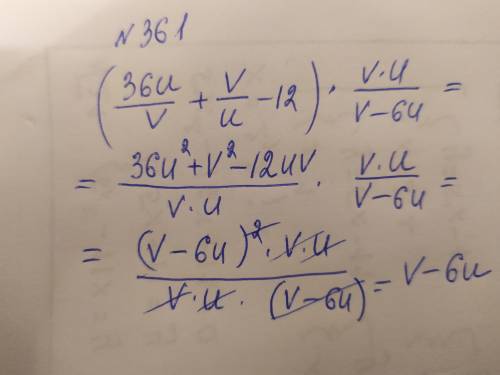 №361
(36u/v + v/u − 12) · v·u/(v−6u) =
= (36u²+v²−12uv)/(v·u) · v·u/(v−6u) =
= (v−6u)²·v·u/(v·u·(v−6u)) = v−6u